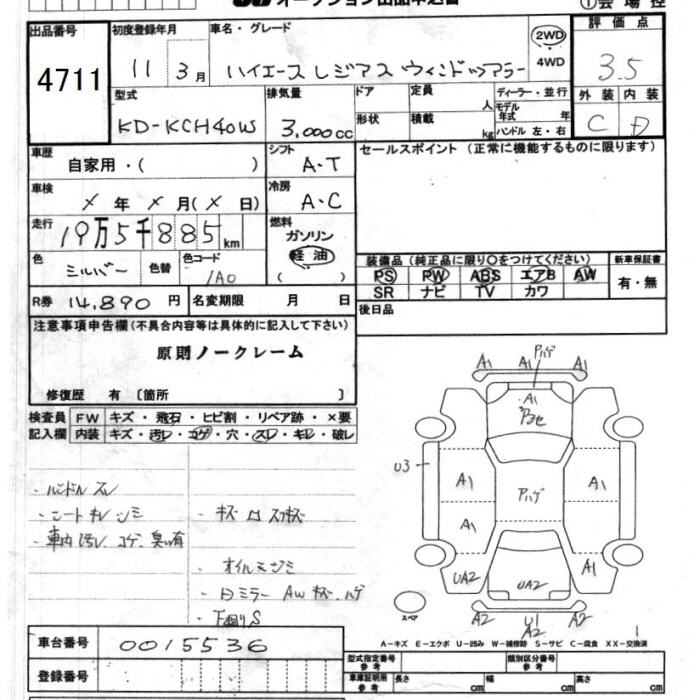 オークション出品申込書
①会場控
出品番号
4711
初度登録年月
11 3月
車名・グレード
ハイエースレジアス ウィンドツアラー
2WD
4WD
評価点
3.5
型式
KD-KCH40W
排気量
3,000cc
ドア
形状
定員 人
積載 kg
ディーラー・並行
モデル年式 年
ハンドル 左・右
外装 内装
C D
車歴
自家用・( )
シフト
A・T
セールスポイント (正常に機能するものに限ります)
車検
× 年 × 月(× 日)
冷房
A・C
走行
19万5千885km
燃料
ガソリン
軽油
( )
色
シルバー
色替
色コード
1A0
装備品 (純正品に限り○をつけてください)
PS PW ABS エアB AW
SR ナビ TV カワ
新車保証書
有・無
R券 14,890 円
名変期限 月 日
後日品
注意事項申告欄(不具合内容等は具体的に記入して下さい)
原則ノークレーム
修復歴 有 〔箇所 〕
検査員 FW キズ・飛石・ヒビ割・リペア跡・×要
記入欄 内装 キズ・汚レ・コゲ・穴・スレ・キレ・破レ
・ハンドルスレ
・シートキレ シミ
・車内汚レ、コゲ、臭い有
・キズ
・オイルニジミ
ミラー AWキズ・ハゲ
・下廻りS
A1 A1 A1
アハゲ
A1
U3
A1 A1
アハゲ
A1
UA2 UA2 A1
スペア
A2 U1 A2
A2
A-キズ E-エクボ U-凹み W-補修跡 S-サビ C-腐食 XX-交換済
車台番号
0015536
登録番号
型式指定番号
参考
類別区分番号
参考
車庫証明用
参考
長さ cm
幅 cm
高さ cm